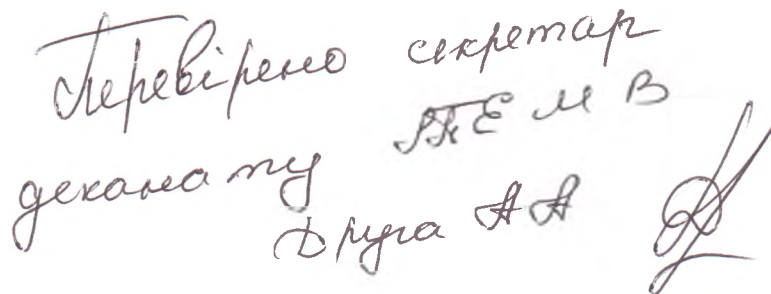 Перевірено секретар
деканату ТЕМВ
Друга А А